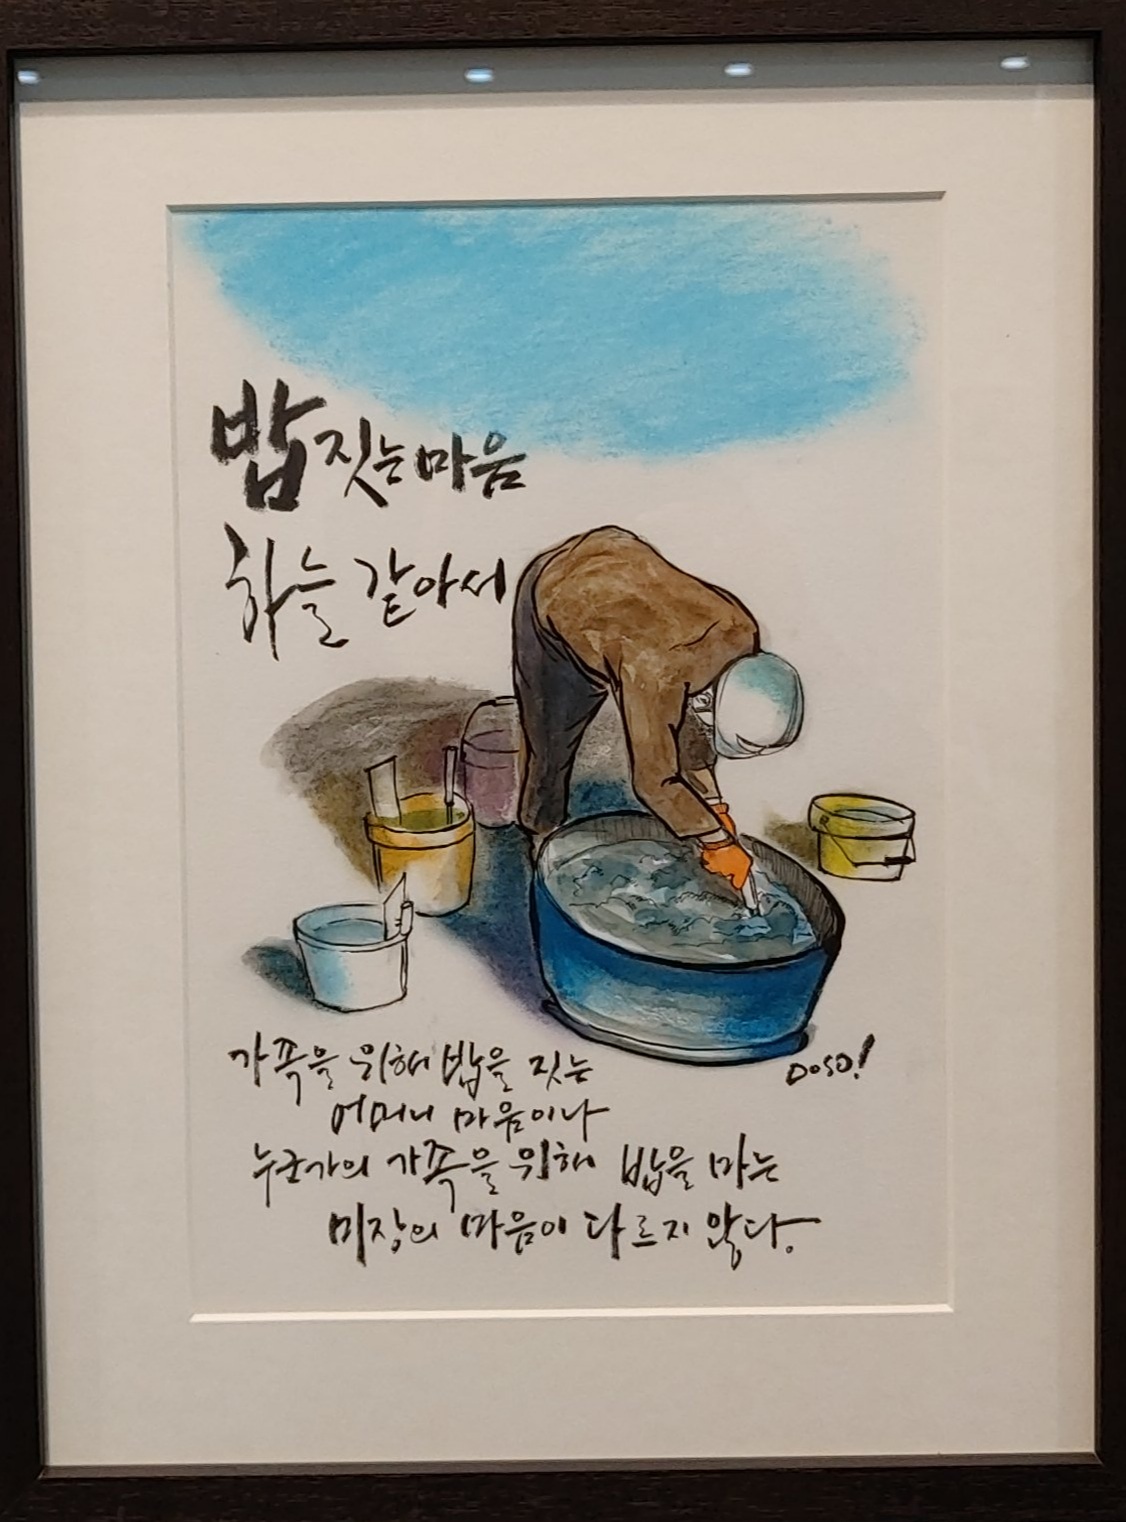 밥 짓는 마음
하늘 같아서
가족을 위해 밥을 짓는
어머니 마음이나
누군가의 가족을 위해 밥을 마는
미장의 마음이 다르지 않다.
DOSO!